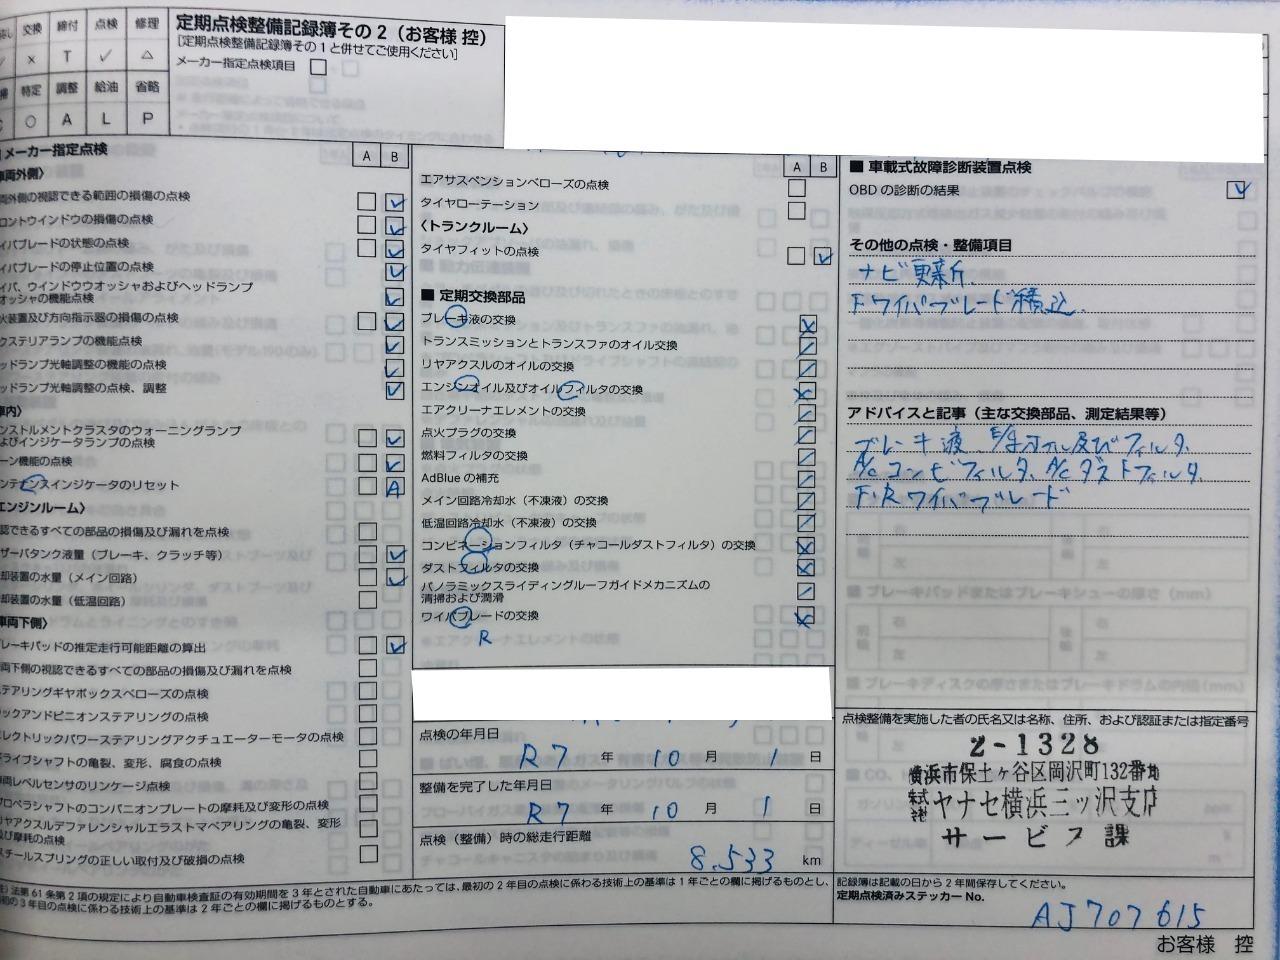 交換 締付 点検 修理
× T ✓ △
特定 調整 給油 省略
○ A L P
定期点検整備記録簿その2（お客様 控）
［定期点検整備記録簿その1と併せてご使用ください］
メーカー指定点検項目 □
メーカー指定点検 A B
両外側〉
両外側の視認できる範囲の損傷の点検 ✓
ロントウインドウの損傷の点検 ✓
イパブレードの状態の点検 ✓
イパブレードの停止位置の点検 ✓
イパ、ウインドウウオッシャおよびヘッドランプ
オッシャの機能点検 ✓
火装置及び方向指示器の損傷の点検 ✓
クステリアランプの機能点検 ✓
ッドランプ光軸調整の機能の点検 ✓
ッドランプ光軸調整の点検、調整 ✓
内〉
ンストルメントクラスタのウォーニングランプ
よびインジケータランプの点検 ✓
ーン機能の点検 ✓
ンテナンスインジケータのリセット A
エンジンルーム〉
認できるすべての部品の損傷及び漏れを点検
ザーバタンク液量（ブレーキ、クラッチ等） ✓
却装置の水量（メイン回路） ✓
却装置の水量（低温回路）
車両下側〉
レーキパッドの推定走行可能距離の算出 ✓
両下側の視認できるすべての部品の損傷及び漏れを点検
テアリングギヤボックスベローズの点検
ックアンドピニオンステアリングの点検
レクトリックパワーステアリングアクチュエーターモータの点検
ライブシャフトの亀裂、変形、腐食の点検
両レベルセンサのリンケージ点検
ロペラシャフトのコンパニオンプレートの摩耗及び変形の点検
リヤアクスルデファレンシャルエラストマベアリングの亀裂、変形
及び摩耗の点検
スチールスプリングの正しい取付及び破損の点検
A B
エアサスペンションベローズの点検
タイヤローテーション
〈トランクルーム〉
タイヤフィットの点検 ✓
■ 定期交換部品
ブレーキ液の交換 ×
トランスミッションとトランスファのオイル交換 /
リヤアクスルのオイルの交換 /
エンジンオイル及びオイルフィルタの交換 ×
エアクリーナエレメントの交換 /
点火プラグの交換 /
燃料フィルタの交換 /
AdBlueの補充 /
メイン回路冷却水（不凍液）の交換 /
低温回路冷却水（不凍液）の交換 /
コンビネーションフィルタ（チャコールダストフィルタ）の交換 ×
ダストフィルタの交換 ×
パノラミックスライディングルーフガイドメカニズムの
清掃および潤滑 /
ワイパブレードの交換 ×
R
点検の年月日
R7 年 10 月 1 日
整備を完了した年月日
R7 年 10 月 1 日
点検（整備）時の総走行距離
8,533 km
■ 車載式故障診断装置点検
OBDの診断の結果 ✓
その他の点検・整備項目
ナビ更新.
F.ワイパブレード積込.
アドバイスと記事（主な交換部品、測定結果等）
ブレーキ液 E/gオイル及びフィルタ.
A/Cコンビフィルタ. A/Cダストフィルタ.
F.Rワイパブレード
点検整備を実施した者の氏名又は名称、住所、および認証または指定番号
2-1328
横浜市保土ヶ谷区岡沢町132番地
株式会社ヤナセ横浜三ッ沢支店
サービス課
法第61条第2項の規定により自動車検査証の有効期間を3年とされた自動車にあたっては、最初の2年目の点検に係わる技術上の基準は1年ごとの欄に掲げるものとし、
初の3年目の点検に係わる技術上の基準は2年ごとの欄に掲げるものとする。
記録簿は記載の日から2年間保存してください。
定期点検済みステッカーNo.
AJ707615
お客様 控